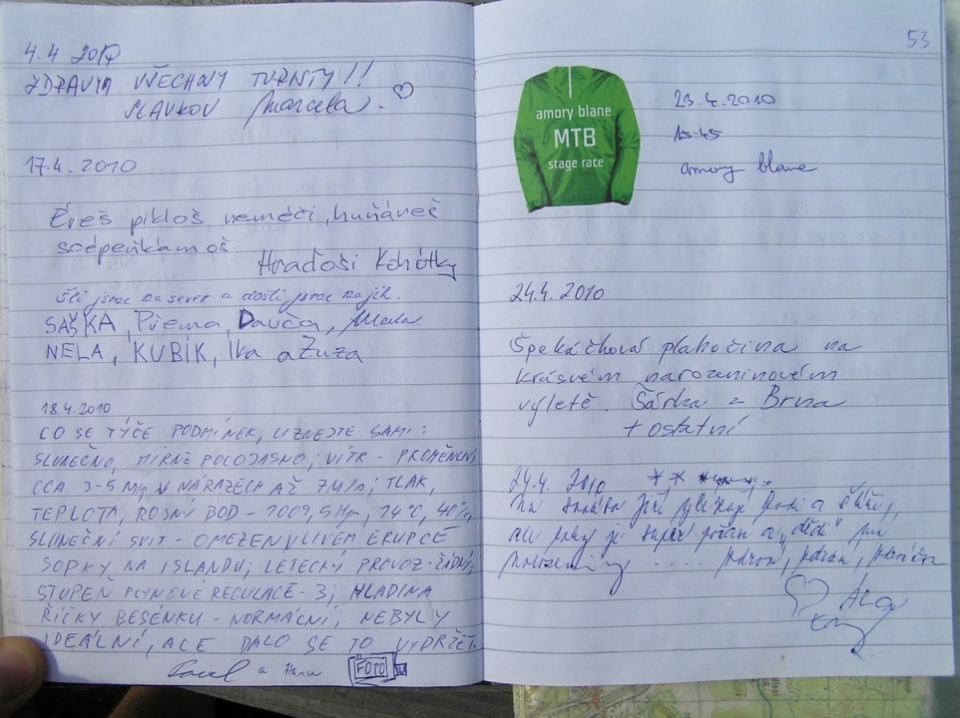 4.4 2010
ZDRAVÍM VŠECHNY TURISTY!!
SLAVKOV Marcela.
17.4. 2010
Éreš pikloš neméči, huňáneč
scépeňkámoš.
Hraďoši Kohótky
Šli jsme na sever a došli jsme na jih.
SAŠKA, Přema, Davča,
NELA, KUBÍK, Iva a Zuza
18.4.2010
CO SE TÝČE PODMÍNEK, UZNEJTE SAMI:
SLUNEČNO, MÍRNĚ POLOJASNO; VÍTR - PROMĚNLIVÝ
CCA 3-5 M/s V NÁRAZECH AŽ 7M/s; TLAK,
TEPLOTA, ROSNÝ BOD - 1009,5 Hp, 14°C,
SLUNEČNÍ SVIT - OMEZEN VLIVEM ERUPCE
SOPKY NA ISLANDU; LETECKÝ PROVOZ - ŽÁDNÝ;
STUPEŇ PLYNOVÉ REGULACE - 3; HLADINA
ŘÍČKY BESÉNKU - NORMÁLNÍ; NEBYLY
IDEÁLNÍ, ALE DALO SE TO VYDRŽET.
Pavel a Hana FOTO
53
amory blane
MTB
stage race
23.4.2010
15:45
amory blane
24.4. 2010
Špekáčková plahočina na
krásném narozeninovém
výletě. Šárka z Brna
+ ostatní
24.4. 2010
ale je super počasí a „dědi"
narozeniny ....